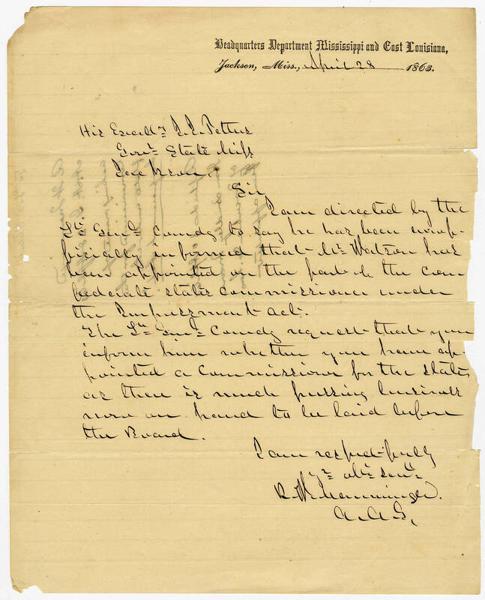 Headquarters Department Mississippi and East Louisiana,
Jackson, Miss., April 28 1863.
His Excellcy J. J. Pettus
Govr State Miss
Jackson.
Sir
I am directed by the
Lt Genl Comdg to say he has been unof-
ficially informed that Mr Watson has
been appointed on the part of the Con
federate States Commissioner under
the Impressment act.
The Lt Genl Comdg requests that you
inform him whether you have ap
pointed a Commissioner for the State
as there is much pressing business
now on hand to be laid before
the Board.
I am respectfully
yr obt Servt
R. W. Memminger.
A.A.G.